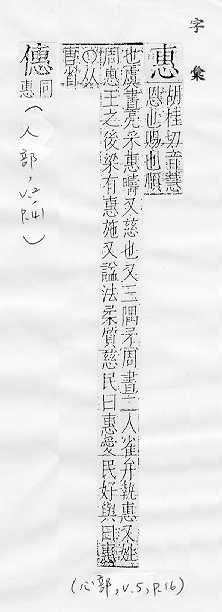 字彙
惠
胡桂切音慧
恩也賜也順
也虞書亮采惠疇又慈也又三隅矛周書二人雀弁執惠又姓
周惠王之後梁有惠施又諡法柔質慈民曰惠愛民好與曰惠
僡
同
惠
(人部, v.2, p.41)
(心部, v.5, p.16)